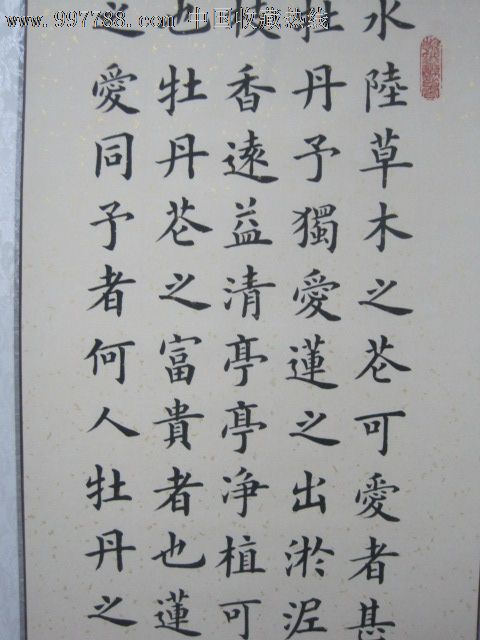 www.997788.com 中国收藏热线
水陸草木之芲可愛者甚
牡丹予獨愛蓮之出淤泥
枝香遠益清亭亭净植可
也牡丹芲之富貴者也蓮
之愛同予者何人牡丹之